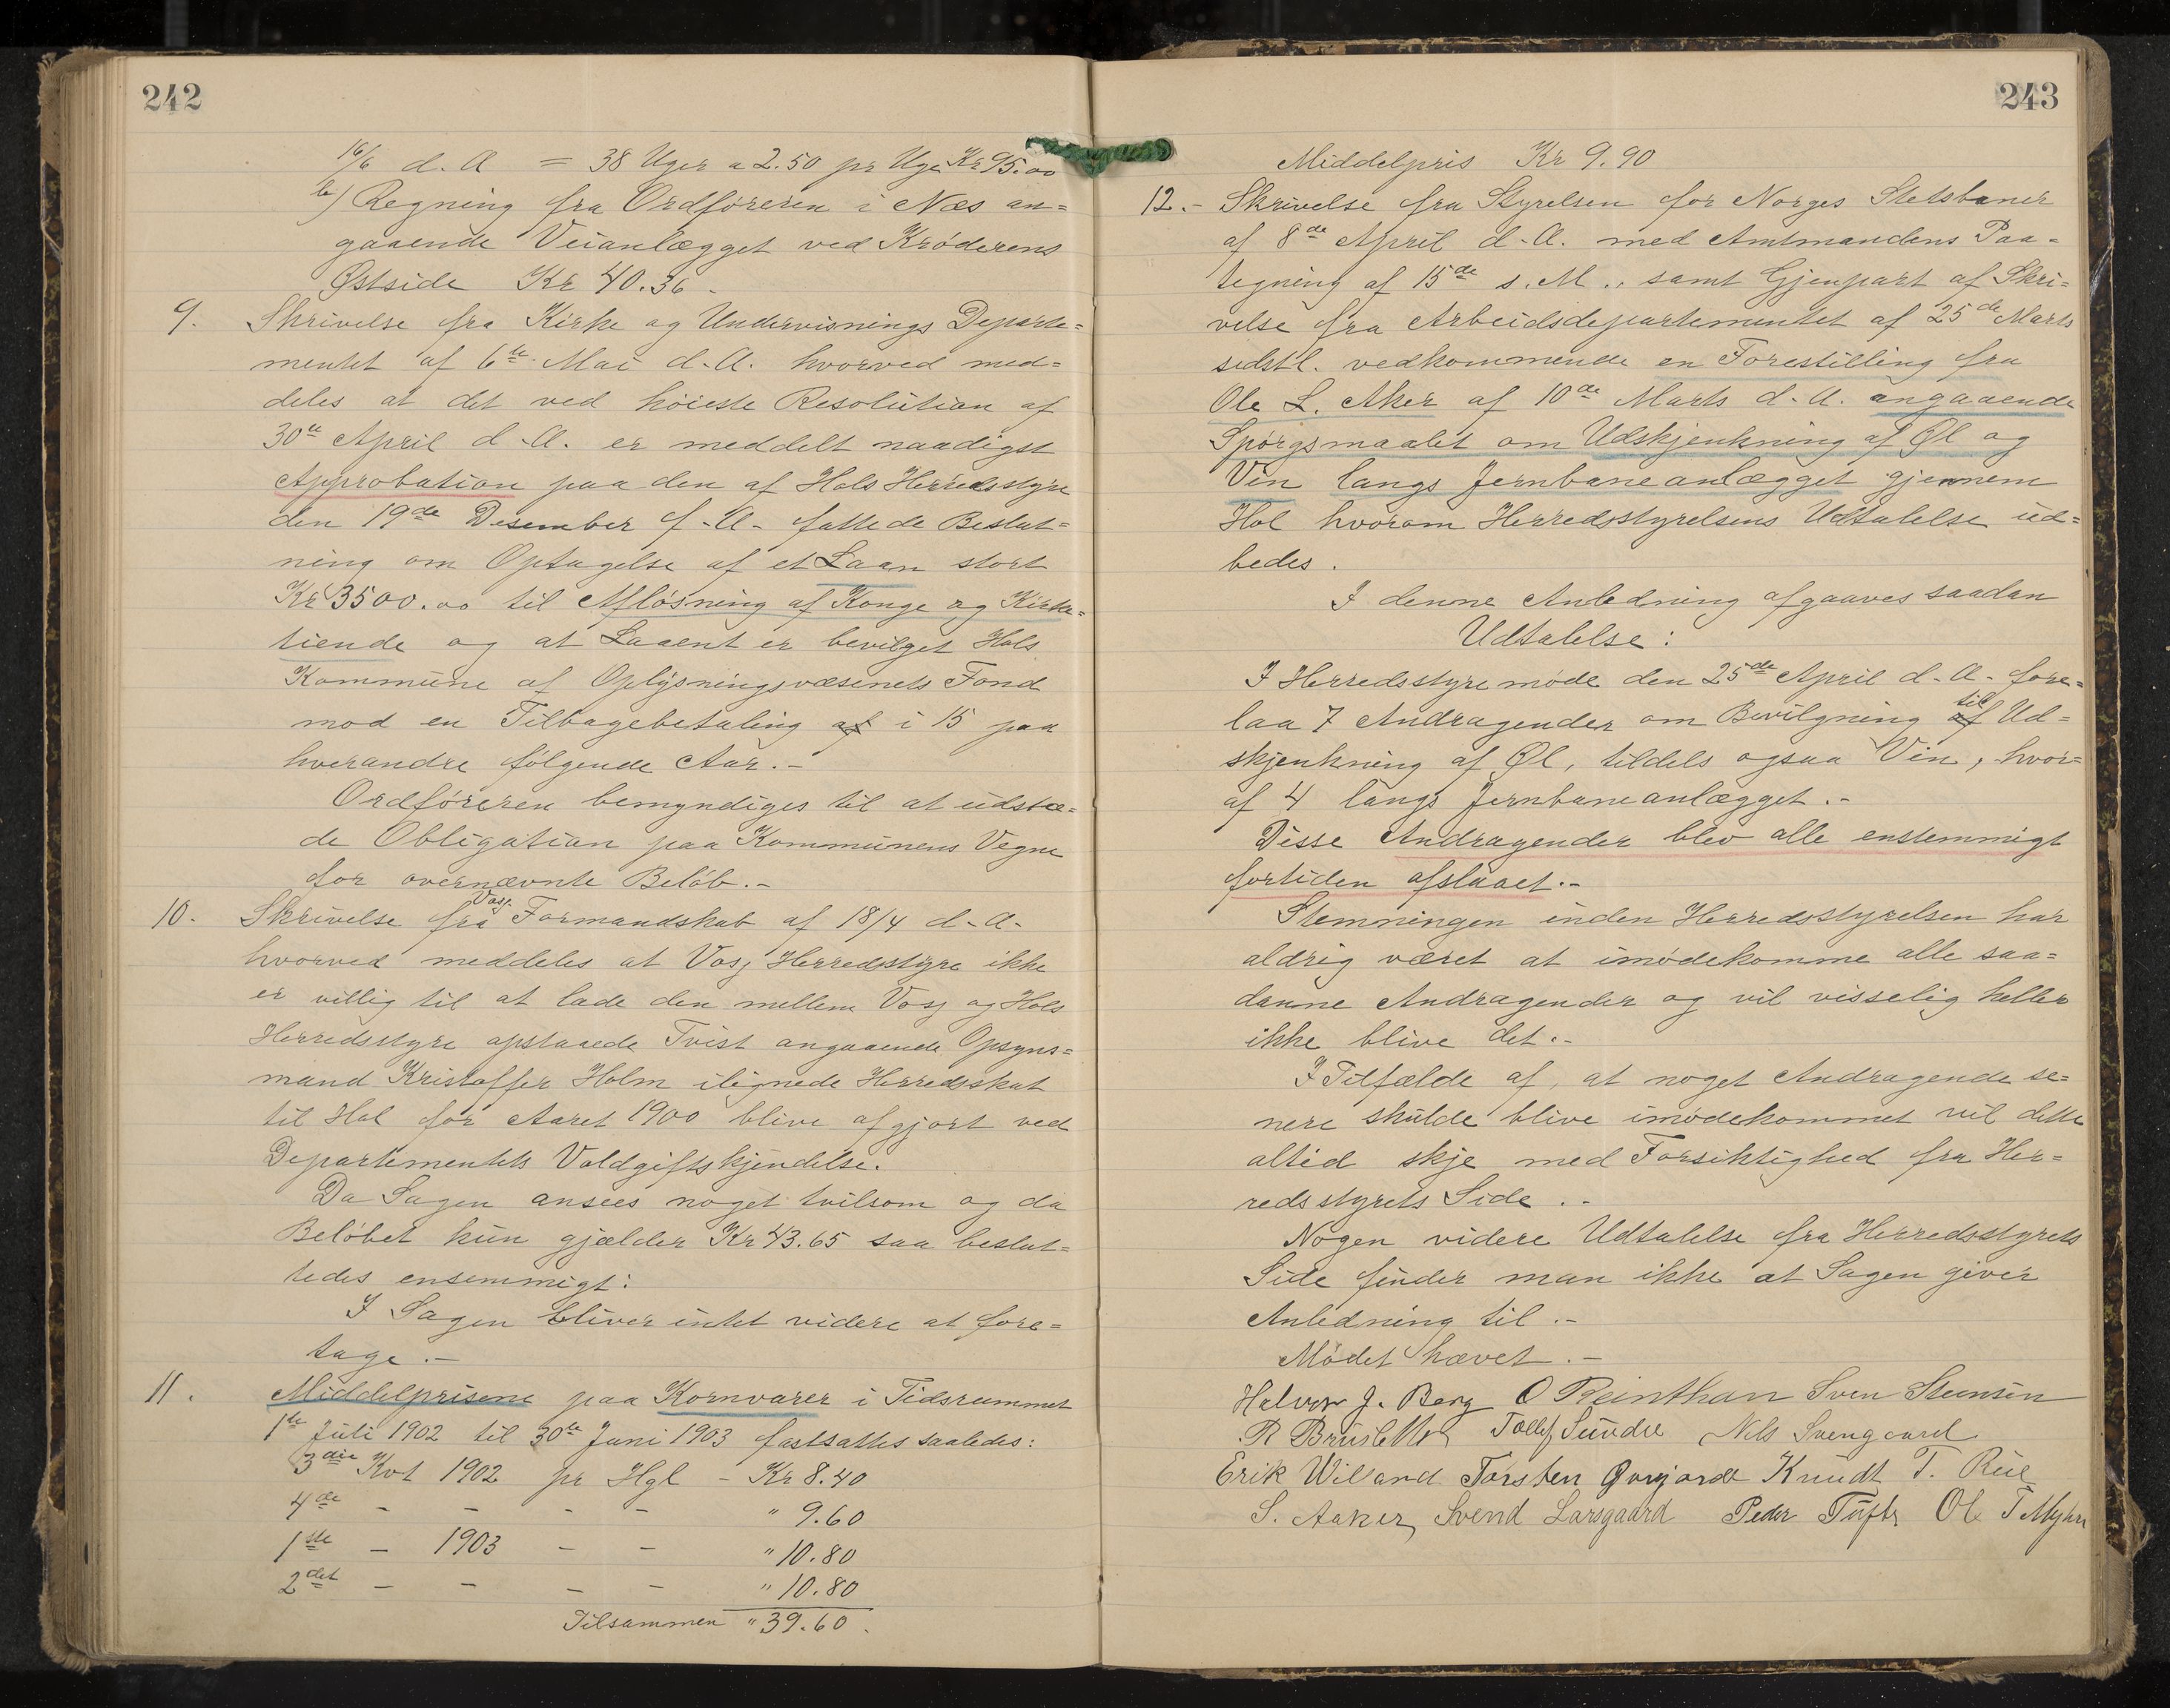 242
16/6 d. A = 38 Uger a 2.50 pr Uge Kr 95.00
b) Regning fra Ordføreren i Næs an=
gaaende Veianlægget ved Krøderens
Østside Kr 40.36.
9. Skrivelse fra Kirke og Undervisnings Departe=
mentet af 6te Mai d. A. hvorved med=
deles at det ved høieste Resolution af
30te April d. A. er meddelt naadigst
Approbation paa den af Hols Herredsstyre
den 19de Desember f. A. fattede Beslut=
ning om Optagelse af et Laan stort
Kr 3500.00 til Afløsning af Konge og Kirke=
tiende og at Laaent er bevilget Hols
Kommune af Oplysningsvæsenets Fond
mod en Tilbagebetaling af i 15 paa
hverandre følgende Aar.-
Ordføreren bemyndiges til at udstæ=
de Obligation paa Kommunens Vegne
for overnævnte Beløb.-
10. Skrivelse fra Voss Formandskab af 18/4 d. A.
hvorved meddeles at Voss Herredsstyre ikke
er villig til at lade den mellem Voss og Hols
Herredsstyre opstaaede Tvist angaaende Opsyns=
mand Kristoffer Holm ilignede Herredsskat
til Hol for Aaret 1900 blive afgjort ved
Departementets Voldgiftskjendelse.
Da Sagen ansees noget tvilsom og da
Beløbet kun gjælder Kr 43.65 saa beslut=
tedes ensemmigt:
I Sagen bliver intet videre at fore=
tage.-
11. Middelprisene paa Kornvarer i Tidsrummet
1ste Juli 1902 til 30te Juni 1903 fastsattes saaledes:
3die Kvt 1902 pr Hgl - Kr 8.40
4de - - - - " 9.60
1ste - 1903 - - " 10.80
2det - - - - " 10.80
Tilsammen " 39.60.
243
Middelpris Kr 9.90
12.- Skrivelse fra Styrelsen for Norges Statsbaner
af 8de April d. A. med Amtmandens Paa=
tegning af 15de s. M., samt Gjenpart af Skri=
velse fra Arbeidsdepartementet af 25de Marts
sidstl. vedkommende en Forestilling fra
Ole L. Aker af 10de Marts d. A. angaaende
Spørgsmaalet om Udskjenkning af Øl og
Vin langs Jernbaneanlægget gjennem
Hol hvorom Herredsstyrelsens Udtalelse ud=
bedes.
I denne Anledning afgaaves saadan
Udtalelse:
I Herredsstyremøde den 25de April d. A. fore=
laa 7 Andragender om Bevilgning af til Ud=
skjenkning af Øl, tildels ogsaa Vin, hvor=
af 4 langs Jernbaneanlægget.-
Disse Andragender blev alle enstemmigt
fortiden afslaaet.-
Stemningen inden Herredsstyrelsen har
aldrig været at imødekomme alle saa=
danne Andragender og vil visselig heller
ikke blive det.-
I Tilfælde af, at noget Andragende se=
nere skulde blive imødekommet vil dette
altid skje med Forsiktighed fra Her=
redsstyrets Side.-
Nogen videre Udtalelse fra Herredsstyrets
Side finder man ikke at Sagen giver
Anledning til.-
Mødet hævet.-
Halvor J. Berg O Reinthan Sven Stensen
R Bruslette Tollef Sundre Nils Svengaard
Erik Willand Torsten Knudt T. Rue
S. Aaker, Svend Larsgaard Peder Tufte Ole T Myhre